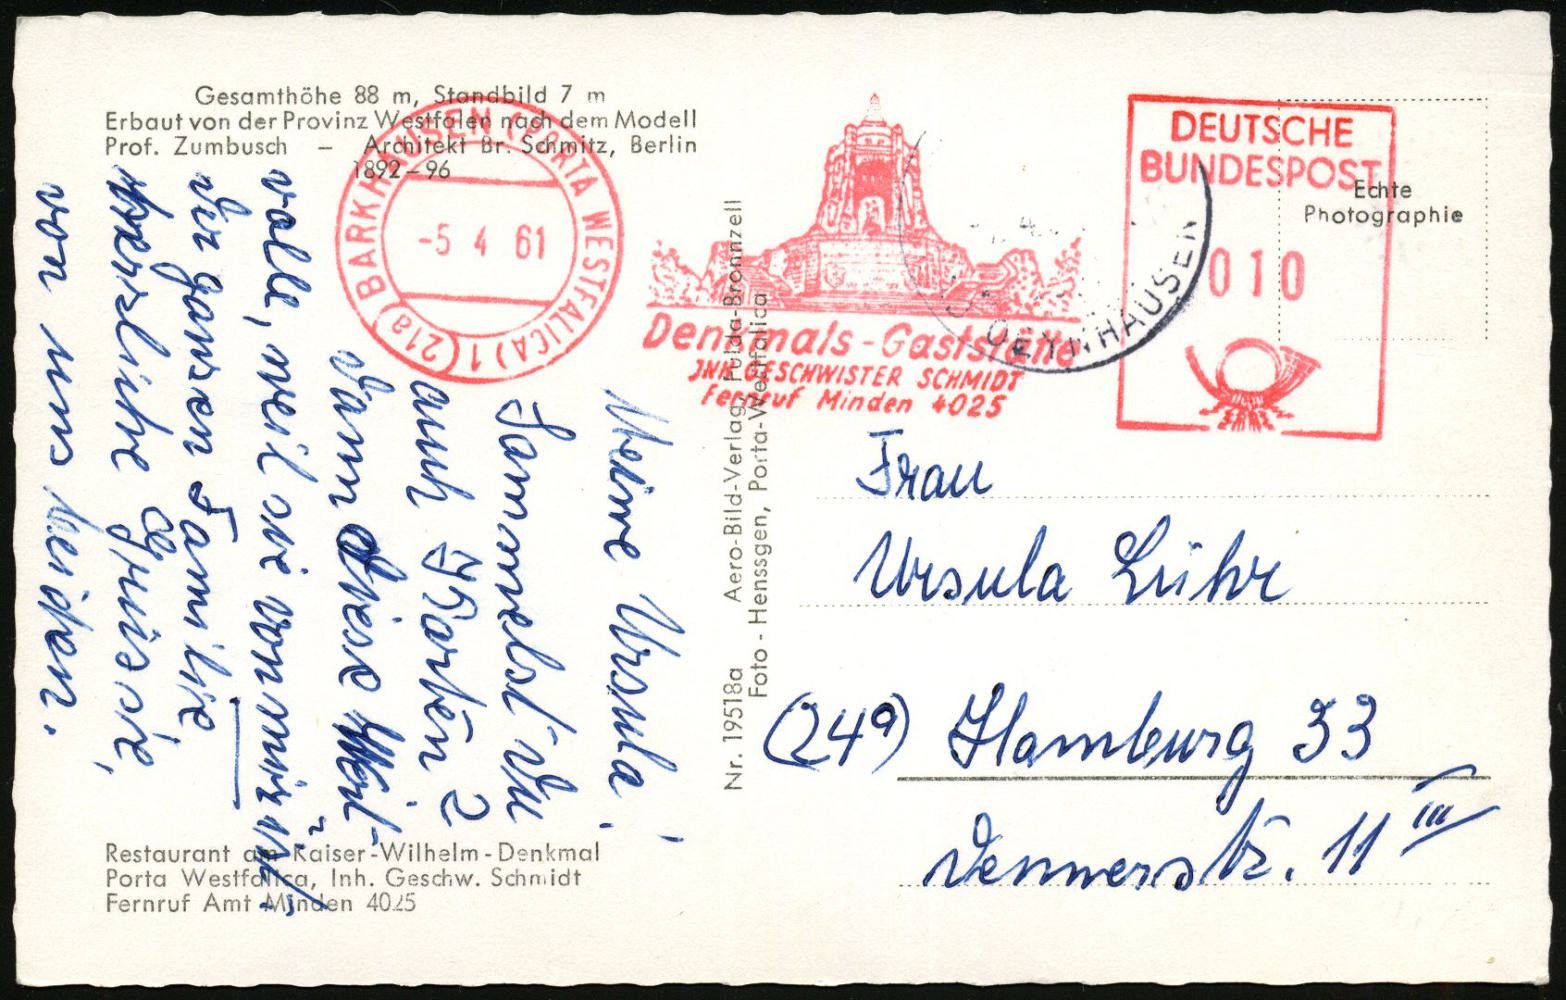 Gesamthöhe 88 m, Standbild 7 m
Erbaut von der Provinz Westfalen nach dem Modell
Prof. Zumbusch – Architekt Br. Schmitz, Berlin
1892–96
(21a) BARKHAUSEN (PORTA WESTFALICA) 1
-5 4 61
Denkmals-Gaststätte
INH. GESCHWISTER SCHMIDT
Fernruf Minden 4025
OEYNHAUSEN
DEUTSCHE
BUNDESPOST
010
Echte
Photographie
Meine Ursula!
Sammelst Du
auch Karten?
Dann diese
volle, weil sie von mir ist!
Dir ganzen Familie
herzliche Grüsse,
von uns beiden.
Nr. 19518a Aero-Bild-Verlag Fulda-Bronnzell
Foto - Henssgen, Porta-Westfalica
Frau
Ursula Lühr
(24a) Hamburg 33
Dennerstr. 11 III
Restaurant am Kaiser-Wilhelm-Denkmal
Porta Westfalica, Inh. Geschw. Schmidt
Fernruf Amt Minden 4025